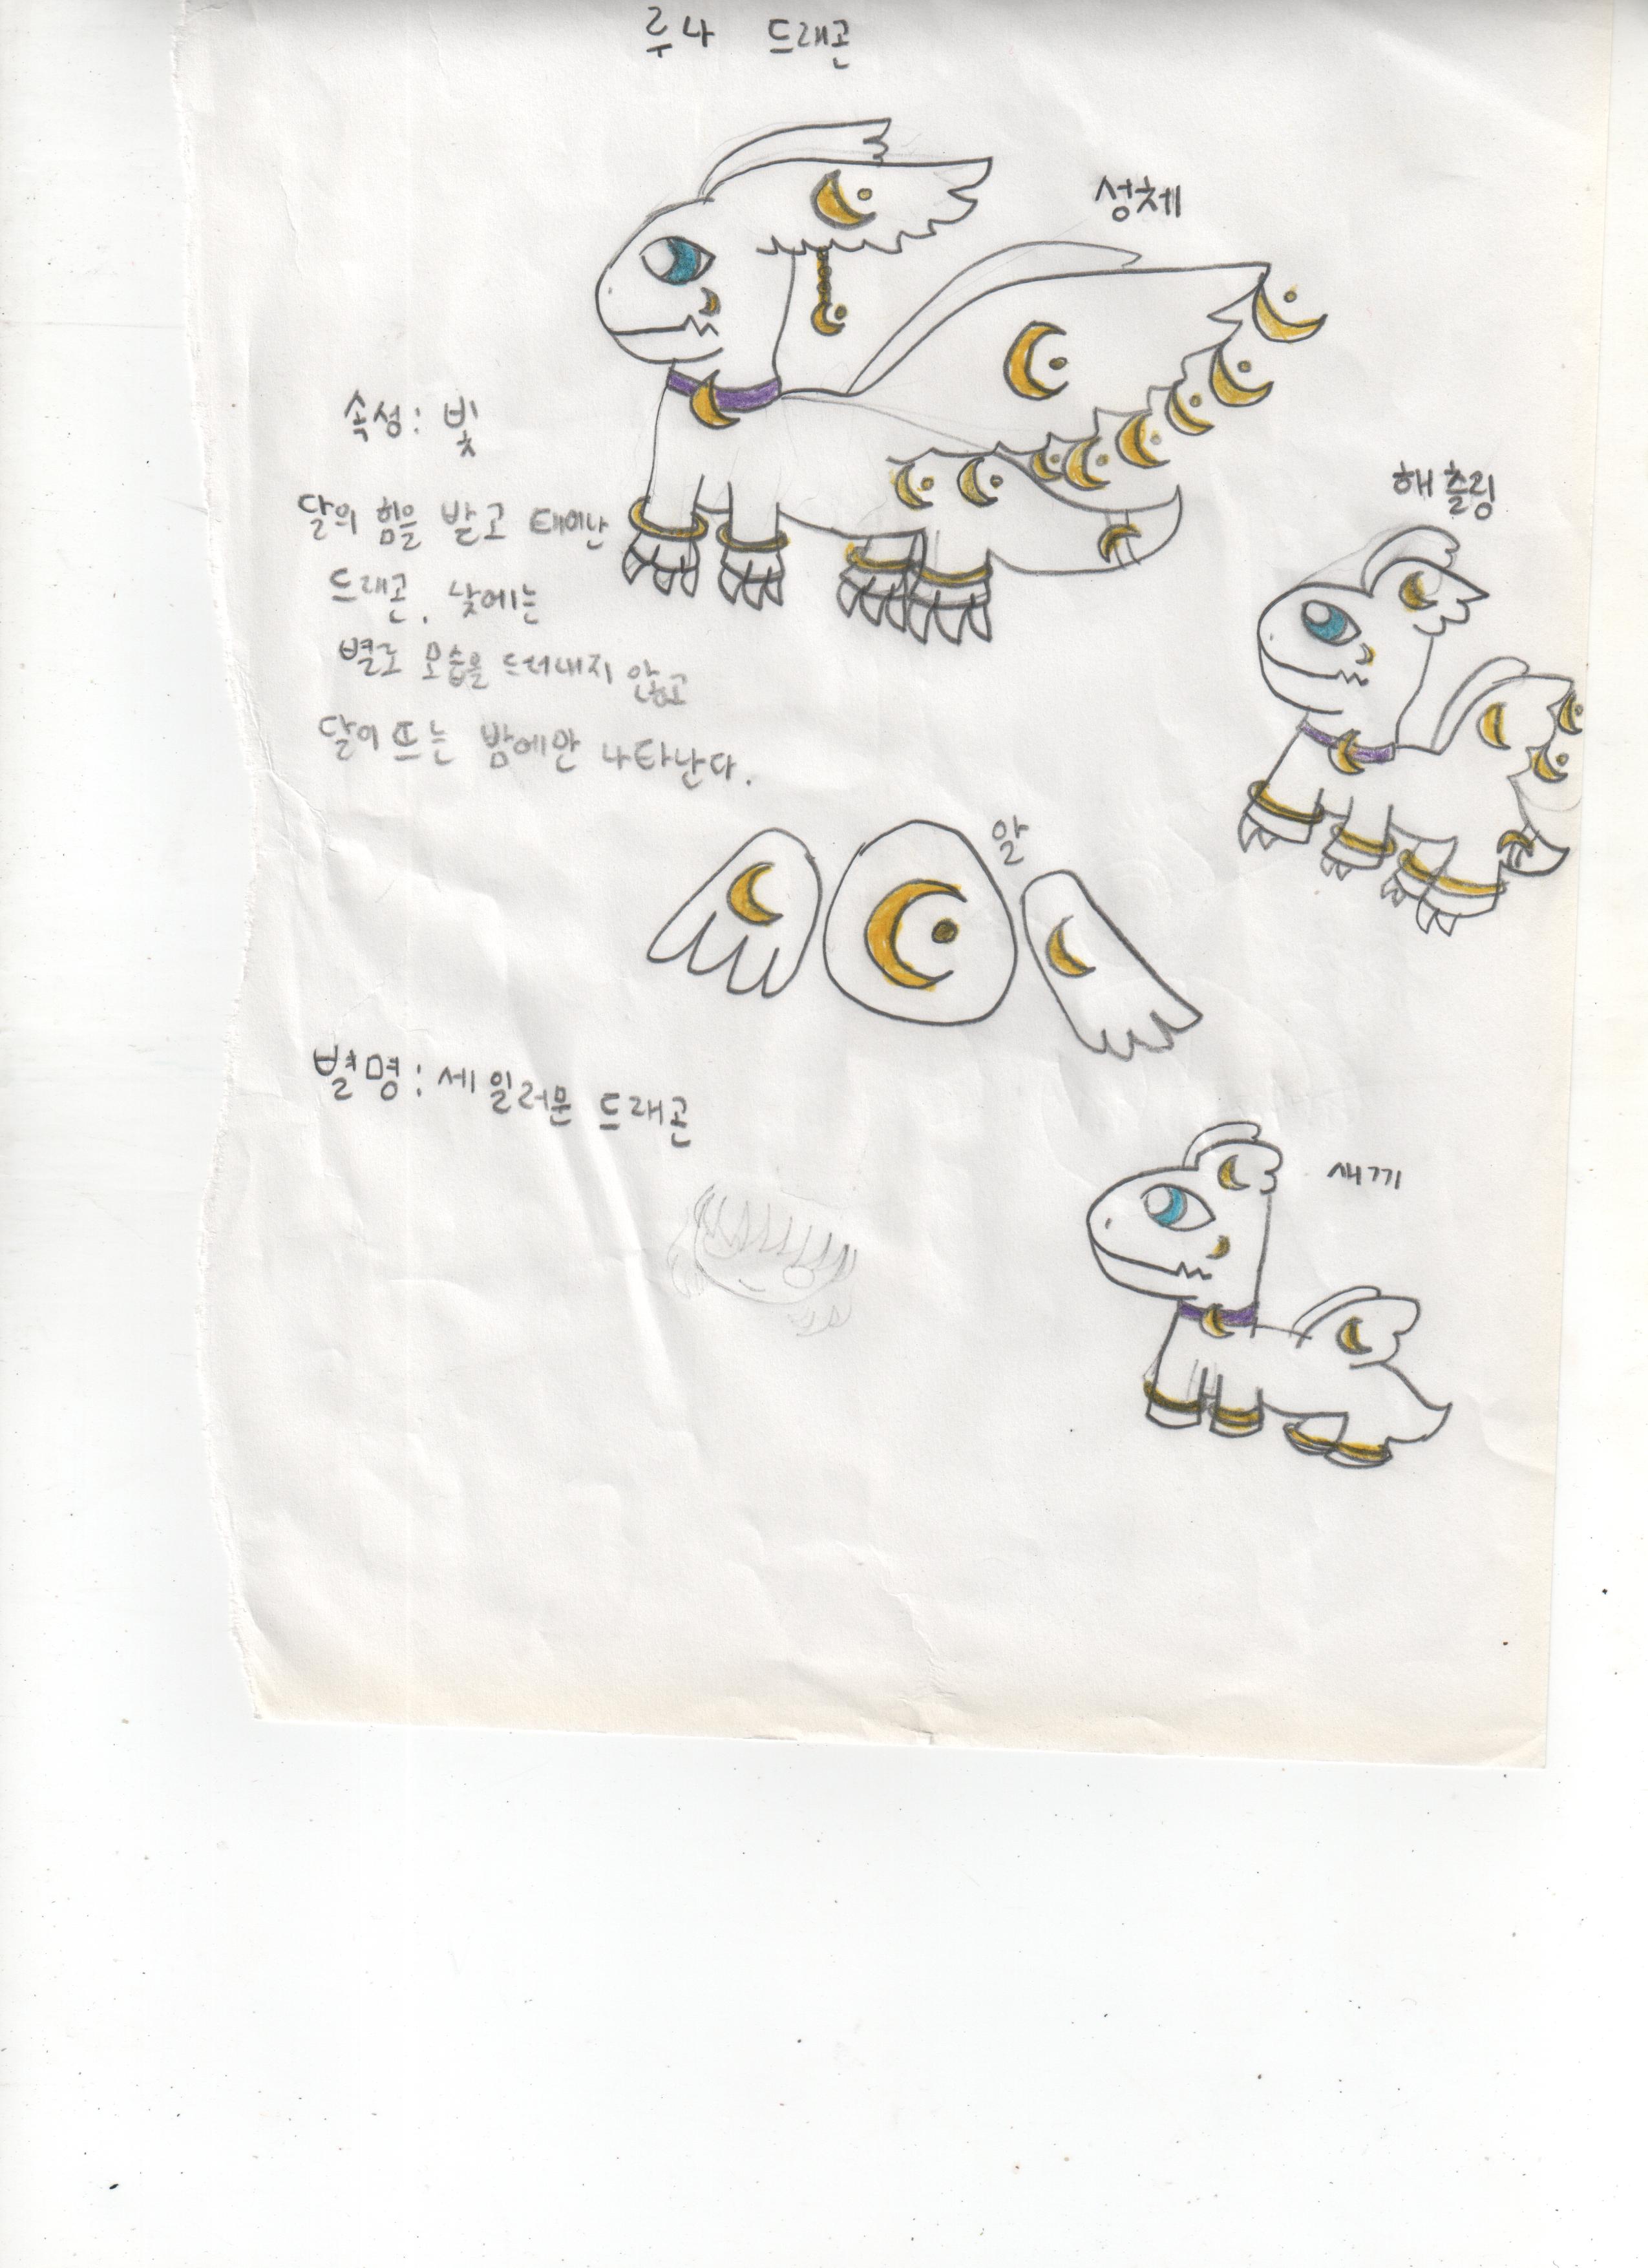 루나 드래곤
성체
속성: 빛
달의 힘을 받고 태어난
드래곤. 낮에는
별로 모습을 드러내지 않고
달이 뜨는 밤에만 나타난다.
해츨링
알
별명: 세일러문 드래곤
새끼